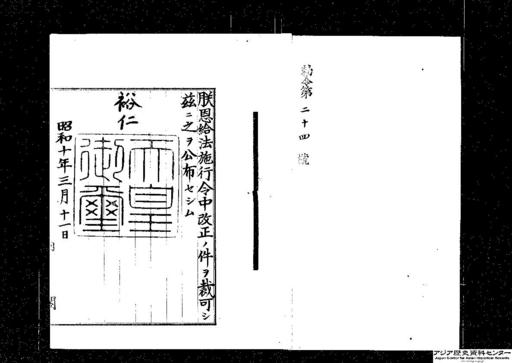 勅令第二十四號
朕恩給法施行令中改正ノ件ヲ裁可シ
茲ニ之ヲ公布セシム
裕仁
天皇
御璽
昭和十年三月十一日
内閣
アジア歴史資料センター
Japan Center for Asian Historical Records